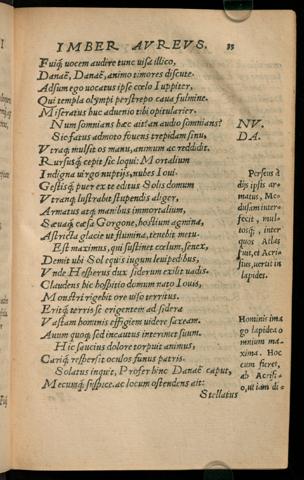 IMBER AVREVS. 35
Fuiq́; uocem audire tunc uisa illico,
Danaë, Danaë, animo timores discute.
Adsum ego uocatus ipse cœlo Iuppiter,
Qui templa olympi perstrepo caua fulmine.
Miseratus huc aduenio tibi opitularier.
Num somnians hæc ait an audio somnians? NV.
Sic fatus admoto fouens trepidam sinu, DA.
Vtraq́; mulsit os manu, animum ac reddidit.
Rursusq́; cepit sic loqui: Mortalium
Indigna uirgo nuptijs, nubes Ioui. Perseus à
Gestisq́; puer ex te editus Solis domum dijs ipsis ar
Vtranq́; lustrabit stupendis aliger, matus, Me
Armatus atq́; manibus immortalium, dusam inter
Sæuaq́; cæsa Gorgone, hostium agmina, fecit, mul
Astricta glacie ut flumina, tenebit metu. tosq́;, inter
Est maximus, qui sustinet cœlum, senex, quos Atlas
Demit ubi Sol equis iugum leuipedibus, fuit, et Acri
Vnde Hesperus dux siderum exilit uadis. sius, uertit in
Claudens hic hospitio domum nato Iouis, lapides.
Monstri rigebit ore uiso territus.
Eritq́; terris se erigentem ad sidera
Vastam hominis effigiem uidere saxeam. Hominis ima
Auum quoq́; sed incautus interimet suum. go lapidea o
Hic saucius dolore torpuit animus, mnium ma
Cariq́; respersit oculos funus patris. xima. Hoc
Solatus inquit, Profer hinc Danaë caput, cum fieret,
Mecumq́; suspice. ac locum ostendens ait: ab Acrisi-
Stellatus o, ut iam di-